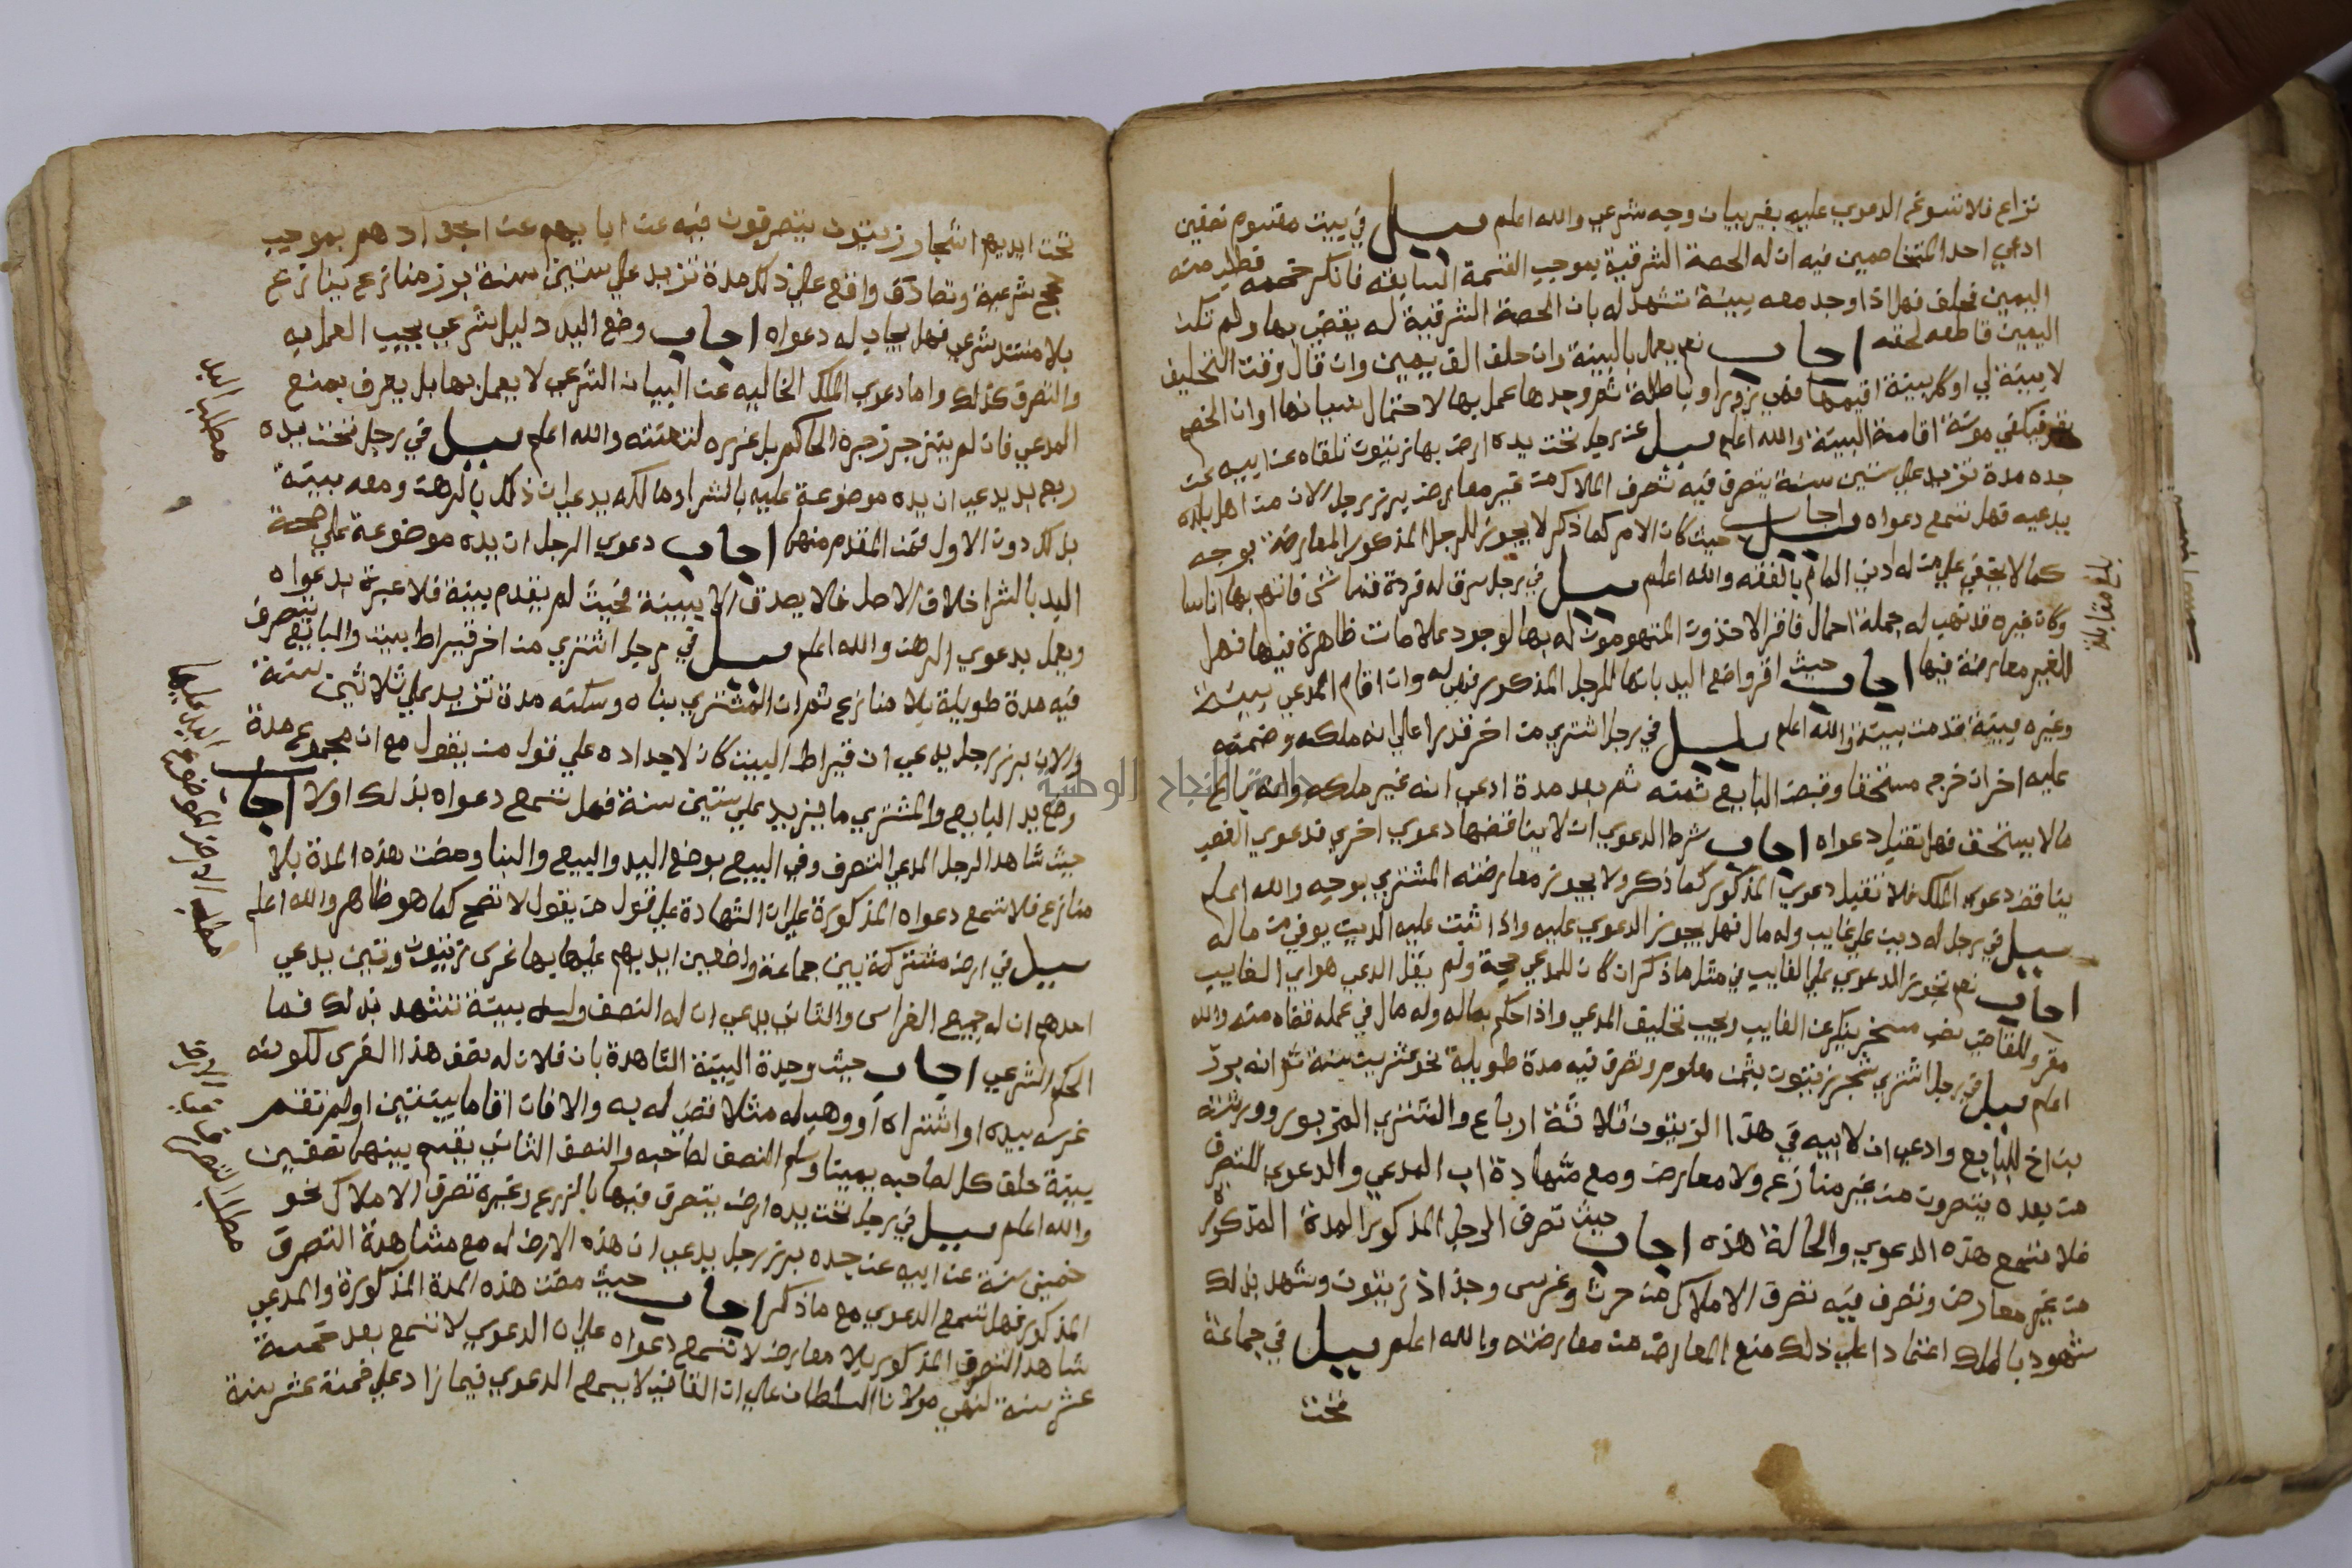 نزاع فلا تسوغ الدعوي عليه بغير بيان وجه شرعي والله اعلم سيل في بيت مقسوم نصفين
ادعي احد المتخاصمين فيه ان له الحصة الشرقية بموجب القسمة السابقة فانكر خصمه فطلب منه
اليمين فحلف فهل اذا وجد معه بينة تشهد له بان الحصة الشرقية له يقضي بها ولم تكن
اليمين قاطعه لحقه اجاب نعم يعمل بالبينة وان حلف الف يمين وان قال وقت التحليف
لا بينة لي او كل بينة اقيمها فهي زور او باطلة ثم وجدها عمل بها لاحتمال نسيانها او ان الخصم
فيكفي مونة اقامة البينة والله اعلم سيل عن رجل تحت يده ارض بها زيتون تلقاه عن ابيه عن
جده مدة تزيد علي ستين سنة يتصرف فيه تصرف الملاك من غير معارض برز رجل الان من اهل بلده
يدعيه فهل تسمع دعواه اجاب حيث كان الامر كما ذكر لا يجوز للرجل المذكور المعارضة بوجه
كما لا يخفي علي من له ادني المام بالفقه والله اعلم سيل في رجل سرق له فردة فماش فاتهم بها اناسا
وكان غيره قد نهب له جملة احمال فاقر الاخذون المتهومون له بها لوجود علامات ظاهرة فيها فهل
للغير معارضة فيها اجاب حيث اقر واضع اليد بانها للرجل المذكور فهي له وان اقام المدعي بينة
وغيره بينة قدمت بينة والله اعلم سيل في رجل اشتري من اخر قدرا علي انه ملكه وضمنه
عليه اخر ان خرج مستحقا وقبض البايع ثمنه ثم بعد مدة ادعي انه غير ملكه وانه بايع
مالا يستحق فهل تقبل دعواه اجاب شرط الدعوي ان لا يناقضها دعوي اخري فدعوي الغير
يناقض دعوي الملك فلا تقبل دعوي المذكور كما ذكر ولا يجوز معارضة المشتري بوجه والله اعلم
سيل في رجل له دين علي غايب وله مال فهل يجوز الدعوي عليه واذا ثبت عليه الدين يوفي من ماله
اجاب نعم تجوز الدعوي علي الغايب في مثل ما ذكر ان كان للمدعي حجة ولم يقل المدعي هو اي الغايب
مقر وللقاضي نصب مسخر ينكر عن الغايب ويجب تحليف المدعي واذا حكم بماله وله مال في عمله قضاه منه والله
اعلم سيل في رجل اشتري شجر زيتون بثمن معلوم وتصرف فيه مدة طويلة نحو عشرين سنة ثم انه برز
بن اخ للبايع وادعي ان لابيه في هذا الزيتون ثلاثة ارباع والمشتري المزبور وورثته
من بعده يتصرون من غير منازع ولا معارض ومع مشهادة اب المدعي والدعوي للتصرف
فلا تسمع هذه الدعوي والحالة هذه اجاب حيث تصرف الرجل المذكور المدة المذكورة
من غير معارض وتصرف فيه تصرف الاملاك من حرث وغرس وجذاذ زيتون وشهد بذلك
شهود بالملك اعتمادا علي ذلك منع المعارض من معارضته والله اعلم سيل في جماعة
تحت
بلغ مقابلة
تحت ايديهم اشجار زيتون يتصرفون فيه عن ابايهم عن اجدادهم بموجب
حجج شرعية وتصادق واقع علي ذلك مدة تزيد علي ستين سنة برز منازع ينازع
بلا مستند شرعي فهل يجاب له دعواه اجاب وضع اليد دليل شرعي يجب العمل به
والتصرف كذلك واما دعوي الملك الخاليه عن البيان الشرعي لا يعمل بها بل يعرف بمنع
المدعي فان لم ينزجر زجره الحاكم بل عزره لتعنته والله اعلم سيل في رجل تحت يده
ربع بد يدعي ان يده موضوعة عليه بالشرا ومالكه يدعي ان ذلك بالرهن ومعه بينة
بذلك دون الاول فمن المقدم منهما اجاب دعوي الرجل ان يده موضوعة علي صحة
اليد بالشرا خلاف الاصل فلا يصدق الا ببينة فحيث لم يقدم بينة فلا عبرة بدعواه
ويعمل بدعوي الرهن والله اعلم سيل في رجل اشتري من اخر قيراط بيت والبايع يتصرف
فيه مدة طويلة بلا منازع ثم ان المشتري بناه وسكنه مدة تزيد علي ثلاثين سنة
والان برز رجل يدعي ان قيراط البيت كان لاجداده علي قول من يقول مع ان مجموع مدة
وضع يد البايع والمشتري ما يزيد علي ستين سنة فهل تسمع دعواه بذلك اولا اجاب
حيث شاهد الرجل المدعي التصرف وفي البيع بوضع اليد والبيع والبنا ومضت هذه المدة بلا
منازع فلا تسمع دعواه المذكورة علي ان الشهادة علي قول من يقول لا تصح كما هو ظاهر والله اعلم
سيل في ارض مشتركة بين جماعة واضعين ايديهم عليها بها غرس زيتون وتين يدعي
احدهم ان له جميع الغراس والثاني يدعي ان له النصف وله بينة تشهد بذلك فما
الحكم الشرعي اجاب حيث وحيدة البينة الشاهدة بان فلان له نصف هذا الغرس لكونه
غرسه بيده او اشتراه او وهب له مثلا قضي له به والا فان اقاما بينتين او لم تقم
بينة حلف كل لصاحبه يمينا وسلم النصف لصاحبه والنصف الثاني يقسم بينهما نصفين
والله اعلم سيل في رجل تحت يده ارض يتصرف فيها بالزرع وغيره تصرف الاملاك نحو
خمسين سنة عن ابيه عن جده برز رجل يدعي ان هذه الارض له مع مشاهدة التصرف
المذكور فهل تسمع الدعوي مع ما ذكر اجاب حيث مضت هذه المدة المذكورة والمدعي
شاهد التصرف المذكور بلا معارض لا تسمع دعواه علي ان الدعوي لا تسمع بعد خمسة
عشر سنة لنهي مولانا السلطان علي ان القاضي لا يسمع الدعوي فيما زاد علي خمسة عشر سنة
مطلب اليد